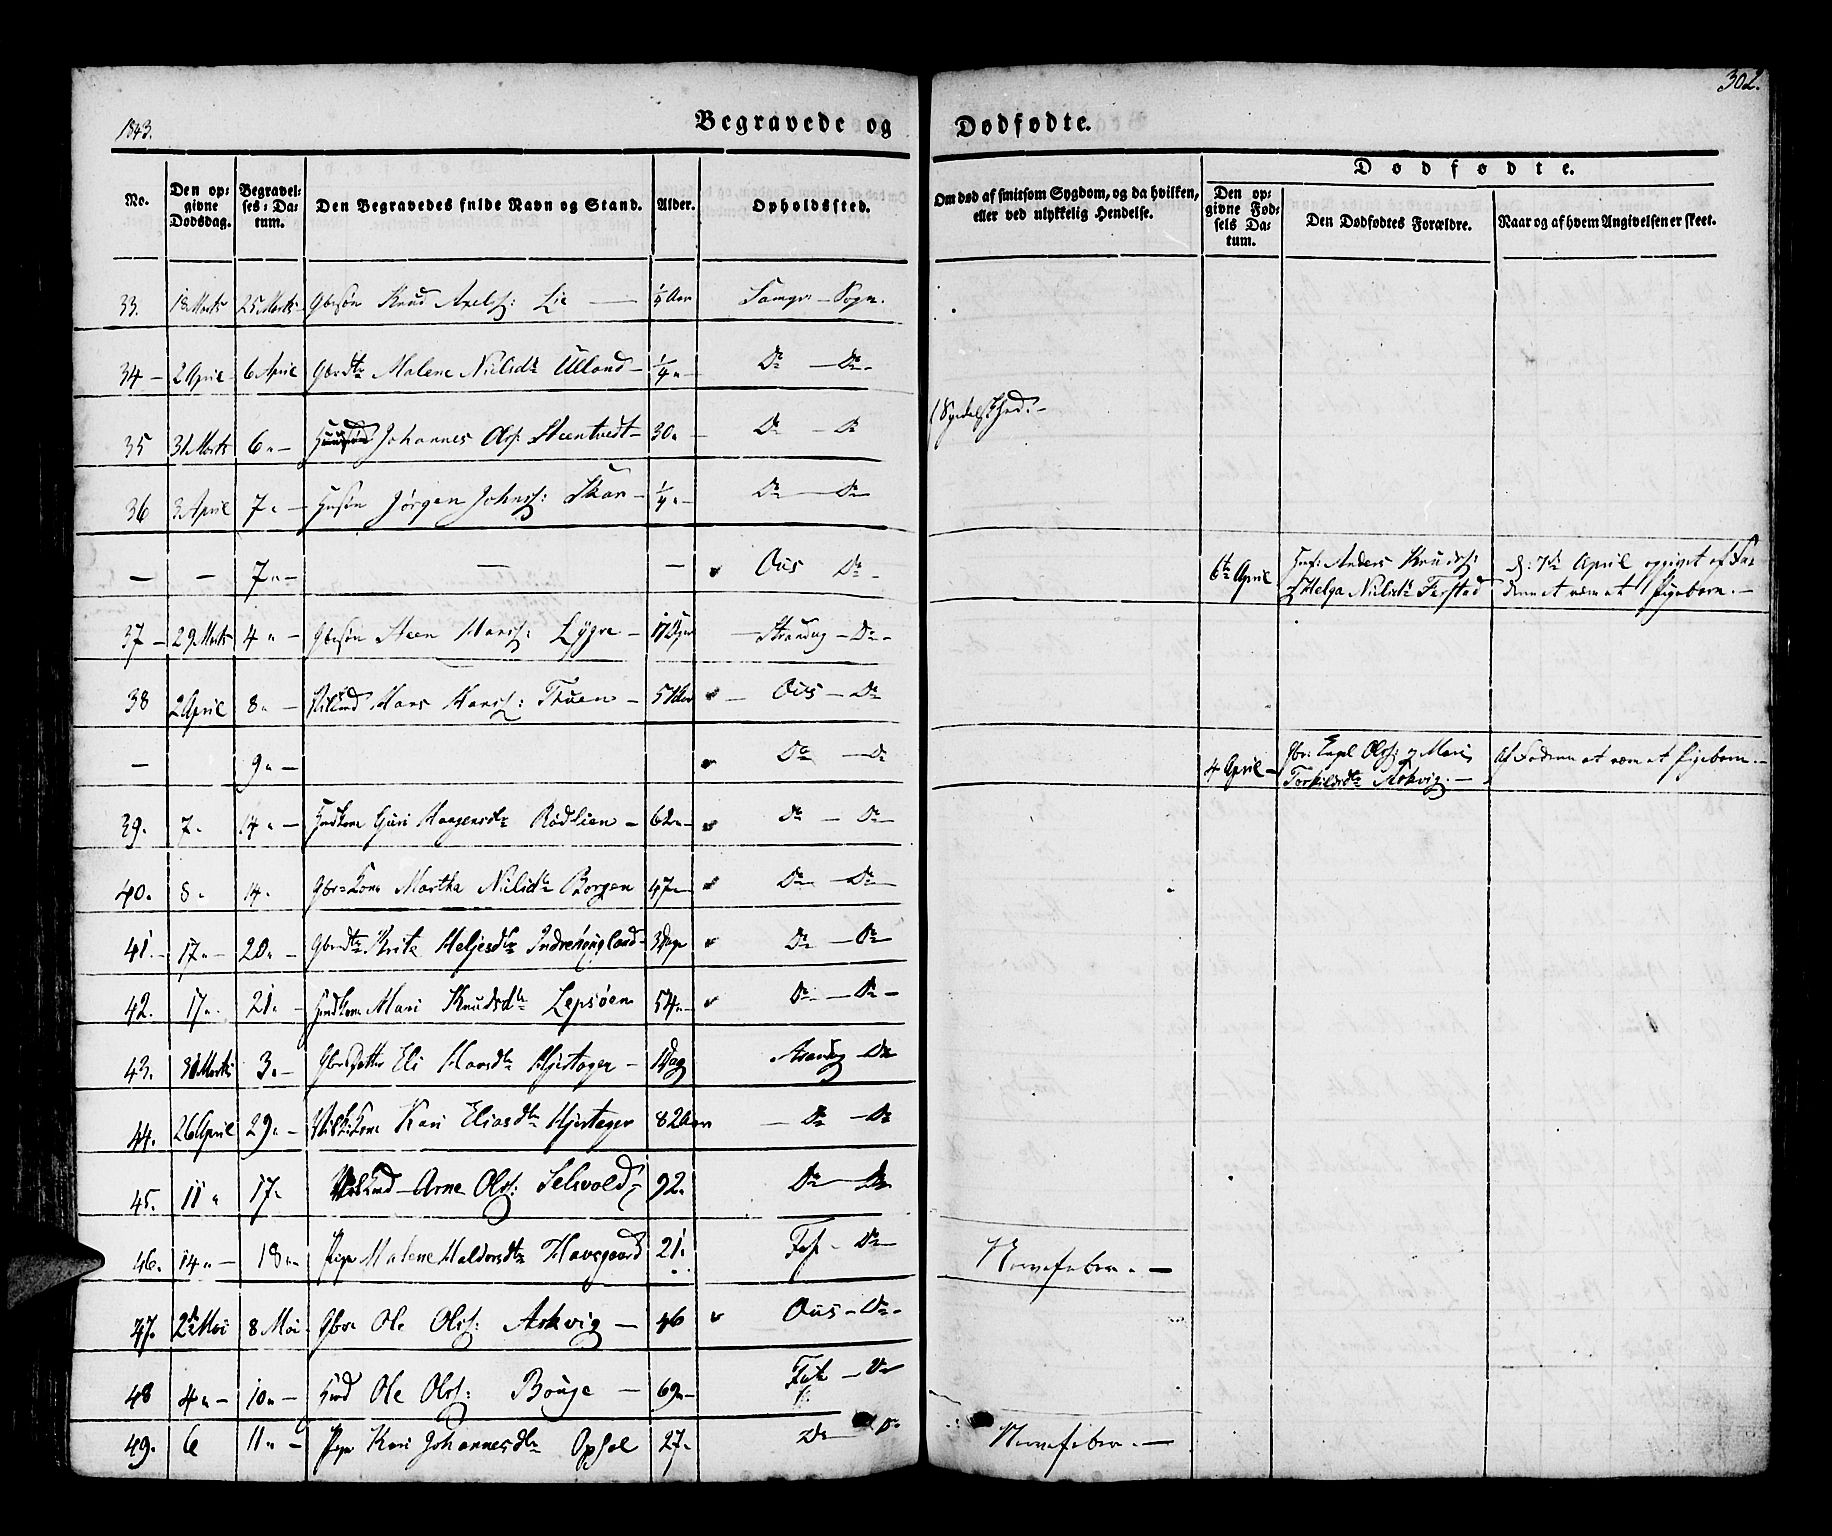 302.
1843.
Begravede og Dødfødte.
No.
Den opgivne Dødsdag.
Begravelses-Datum.
Den Begravedes fulde Navn og Stand.
Alder.
Opholdssted.
Om død af smitsom Sygdom, og da hvilken, eller ved ulykkelig Hendelse.
Dødfødte.
Den opgivne Fødsels Datum.
Den Dødfødtes Forældre.
Naar og af hvem Angivelsen er skeet.
33. 18 Marts 25 Marts Gbrsøn Knud Axels: Lie — Aar Samgr — Sogn.
34 — 2 April 6 April Gbrdtr Malene Nielsdr Ulland — 1/4 " Do — Do
35 31 Marts 6 " — Johannes Ols: Steentvedt — 30 " Do — Do Spedalskhed. —
36 3 April 7 " — Husm Jørgen Johns: Skar — 1/4 " Do — Do
— — 7 " — — — Ous Do — 6te April Husm: Anders Knuds: & Helga Nielsdr Farstad d: 7de April opgivet af Faderen at være et Pigebarn. —
37 — 29 Marts 4 " — Gbrsøn Steen Hans: Lygre — 17 Dage — Strandv — Do —
38 2 April 8 " — Hans Hans: Thuen — 57 Aar — Ous — Do
— 9 " — Do — Do 4 April — Gbr: Engel Ols: & Mari Torkildsdr Askvig. — Af Faderen at være et Pigebarn. —
39. 7 " 14 " — Huskone Guri Haagensdr Rødlien — 62 " — Do — Do
40. 8 " 14 " Gbr-Kone Martha Nielsdr Borgen 47 " — Do — Do
41. — 17 " — 20 " — Gbrdtr Brite Heljesdr Indrehougland — 3 Dage Do — Do
42. 17 " 21 " — Huskone Mari Knudsdr Lepsøen 54 " — Do — Do —
43. 31 Marts 3 " — Gbrdatter Eli Hansdr Hjertager — 1 Dag Strandv Do
44. 26 April 29 " — Kone Kari Eliasdr Hjertager 82 Aar — Do — Do
45. 11 " 17 " — Arne Ols: Selsvold 92 " Do — Do
46. 14 " — 18 " — Pige Malene Haldorsdr Havsgaard 21 " Fus — Do Nervefeber. —
47. 2de Mai 8 Mai Gbr Ole Ols: Askvig — 46 Ous — Do —
48 4 " — 10 " — Husmd Ole Ols: Bouge — 69 " — Do
49. 6 11 " — Pige Kari Johannesdr Opsal 27 " Do — Do Nervefeber. —